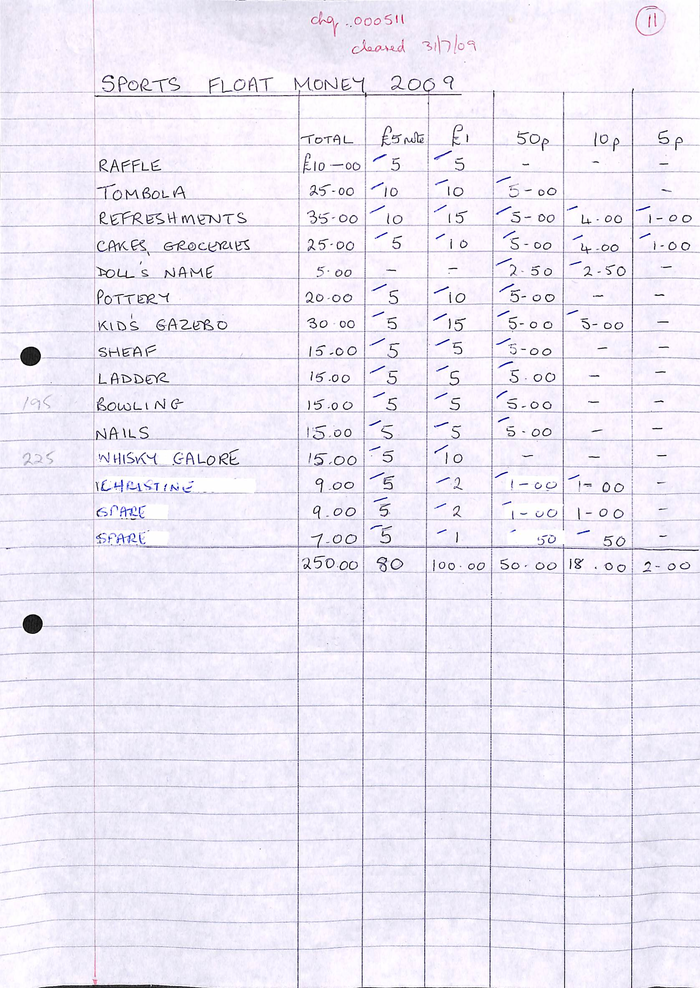 chq .000511
11
cleared 31/7/09
SPORTS FLOAT MONEY 2009
TOTAL £5 note £1 50p 10p 5p
RAFFLE £10-00 5 5 - - -
TOMBOLA 25.00 10 10 5-00 -
REFRESHMENTS 35.00 10 15 5-00 4.00 1-00
CAKES, GROCERIES 25.00 5 10 5-00 4.00 1.00
DOLL'S NAME 5.00 - - 2.50 2-50 -
POTTERY 20.00 5 10 5-00 - -
KID'S GAZEBO 30.00 5 15 5-00 5-00 -
SHEAF 15.00 5 5 5-00 - -
LADDER 15.00 5 5 5.00 - -
195 BOWLING 15.00 5 5 5.00 - -
NAILS 15.00 5 5 5.00 - -
225 WHISKY GALORE 15.00 5 10 - - -
CHRISTINE 9.00 5 2 1-00 1-00 -
SPARE 9.00 5 2 1-00 1-00 -
SPARE 7.00 5 1 50 50 -
250.00 80 100.00 50.00 18.00 2-00